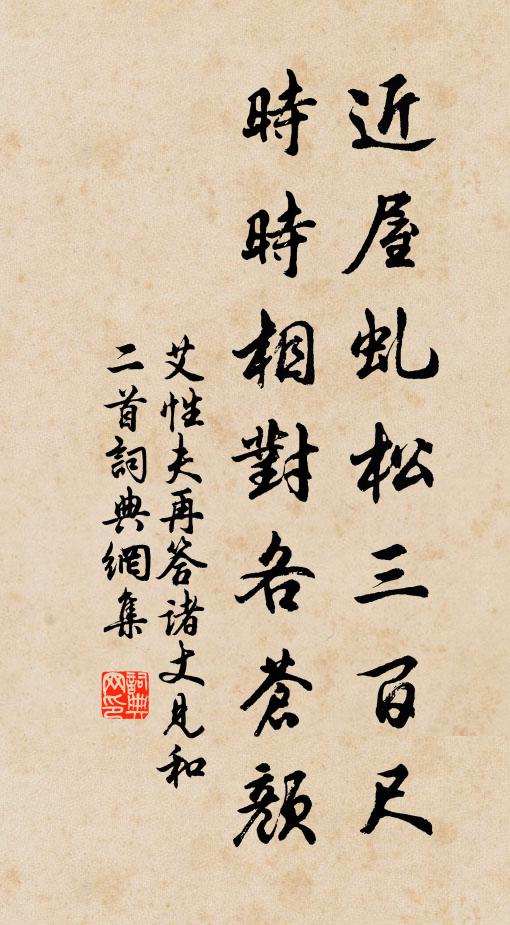 近屋虬松三百尺
時時相對各蒼顔
艾性夫再答诸丈見和
二首詞典網集
詞典网印